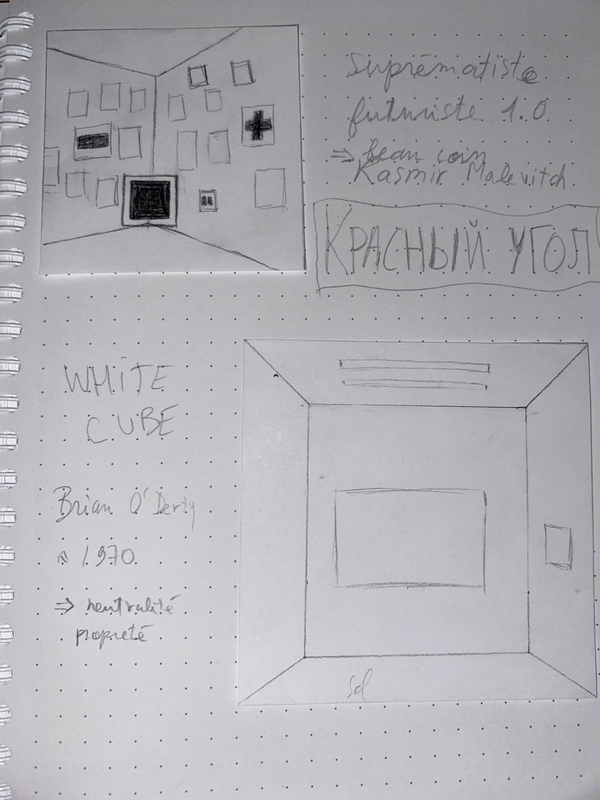 Suprématiste
futuriste 1.0
⇒ beau coin
Kasmir Malevitch
КРАСНЫЙ УГОЛ
WHITE
CUBE
Brian O'Derty
≈ 1970
⇒ neutralité
propreté
Sol